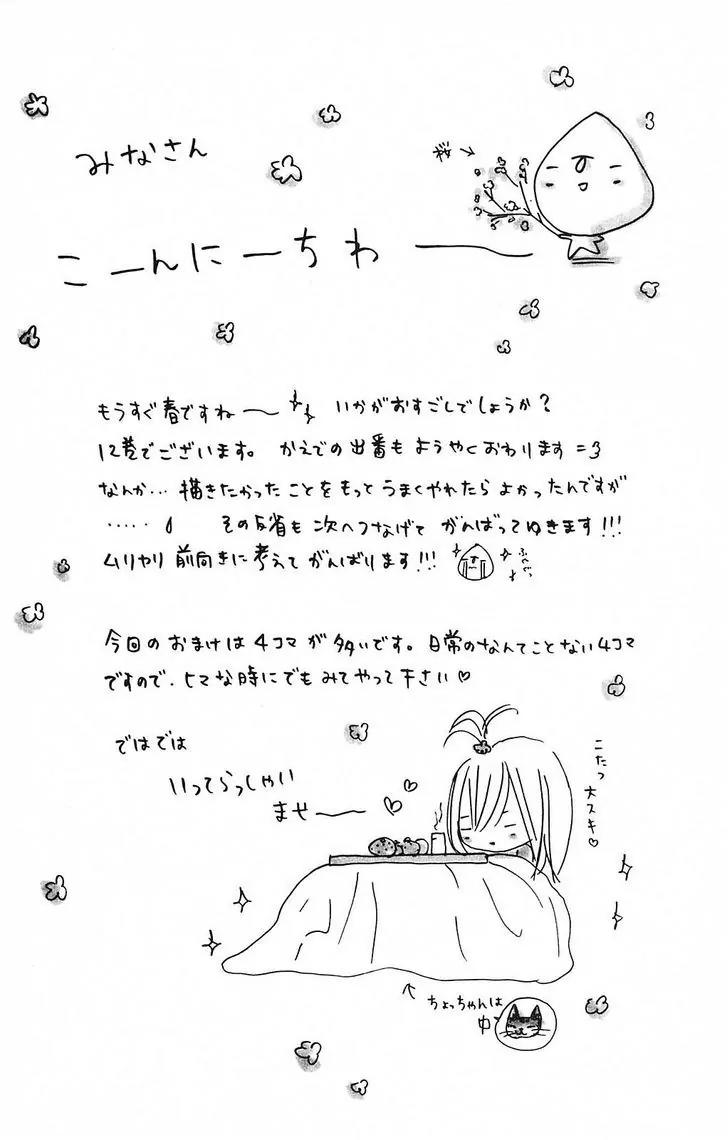 みなさん
桜→
こーんにーちわー
もうすぐ春ですねー いかがおすごしでしょうか?
12巻でございます。 かえでの出番もようやくおわります=3
なんか… 描きたかったことをもっとうまくやれたらよかったんですが
…‥ その反省も次へつなげてがんばってゆきます!!!
ムリヤリ前向きに考えてがんばります!!!
今回のおまけは4コマが多いです。日常のなんてことない4コマ
ですので、ヒマな時にでもみてやって下さい♡
ではでは
いってらっしゃい
ませー
こたつ
大スキ♡
ちょっちゃんは
中